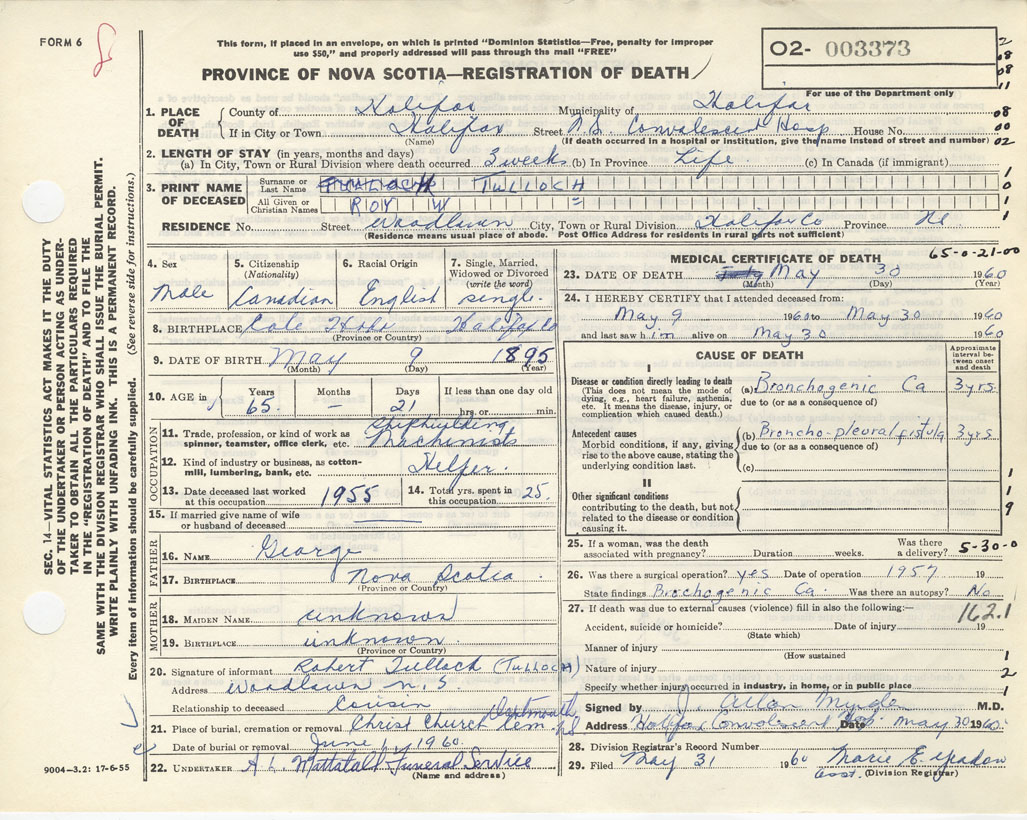 FORM 6
This form, if placed in an envelope, on which is printed "Dominion Statistics—Free, penalty for improper
use $50," and properly addressed will pass through the mail "FREE"
PROVINCE OF NOVA SCOTIA—REGISTRATION OF DEATH
O2- 003373
For use of the Department only
1. PLACE OF DEATH County of Halifax Municipality of Halifax 08
If in City or Town Halifax Street N.S. Convalescent Hosp House No. 00
(Name) (If death occurred in a hospital or institution, give the name instead of street and number) 02
2. LENGTH OF STAY (in years, months and days)
(a) In City, Town or Rural Division where death occurred 3 weeks (b) In Province Life (c) In Canada (if immigrant)
3. PRINT NAME OF DECEASED Surname or Last Name TULLOCH
All Given or Christian Names ROY W
RESIDENCE No. Street Woodlawn City, Town or Rural Division Halifax Co Province NS
(Residence means usual place of abode. Post Office Address for residents in rural parts not sufficient)
SEC. 14—VITAL STATISTICS ACT MAKES IT THE DUTY
OF THE UNDERTAKER OR PERSON ACTING AS UNDER-
TAKER TO OBTAIN ALL THE PARTICULARS REQUIRED
IN THE "REGISTRATION OF DEATH" AND TO FILE THE
SAME WITH THE DIVISION REGISTRAR WHO SHALL ISSUE THE BURIAL PERMIT.
WRITE PLAINLY WITH UNFADING INK. THIS IS A PERMANENT RECORD.
Every item of information should be carefully supplied. (See reverse side for instructions.)
4. Sex Male
5. Citizenship (Nationality) Canadian
6. Racial Origin English
7. Single, Married, Widowed or Divorced (write the word) single
8. BIRTHPLACE Cole Hbr Halifax Co
(Province or Country)
9. DATE OF BIRTH May 9 1895
(Month) (Day) (Year)
10. AGE in Years 65 Months — Days 21 If less than one day old hrs. or min.
OCCUPATION
11. Trade, profession, or kind of work as spinner, teamster, office clerk, etc. Shipbuilding Machinists
12. Kind of industry or business, as cotton-mill, lumbering, bank, etc. Helper
13. Date deceased last worked at this occupation 1955 14. Total yrs. spent in this occupation 25
15. If married give name of wife or husband of deceased
FATHER
16. NAME George
17. BIRTHPLACE Nova Scotia
(Province or Country)
MOTHER
18. MAIDEN NAME unknown
19. BIRTHPLACE unknown
(Province or Country)
20. Signature of informant Robert Tulloch (TULLOCH)
Address Woodlawn N.S.
Relationship to deceased Cousin
21. Place of burial, cremation or removal Christ Church Cem Dartmouth NS
Date of burial or removal June 1, 1960
22. UNDERTAKER A L Mattatall Funeral Service
(Name and address)
9004-3.2: 17-6-55
MEDICAL CERTIFICATE OF DEATH 65-0-21-00
23. DATE OF DEATH May 30 1960
(Month) (Day) (Year)
24. I HEREBY CERTIFY that I attended deceased from:
May 9 1960 to May 30 1960
and last saw him alive on May 30 1960
CAUSE OF DEATH
Approximate interval between onset and death
I
Disease or condition directly leading to death
(This does not mean the mode of dying, e.g., heart failure, asthenia, etc. It means the disease, injury, or complication which caused death.)
(a) Bronchogenic Ca 3 yrs.
due to (or as a consequence of)
Antecedent causes
Morbid conditions, if any, giving rise to the above cause, stating the underlying condition last.
(b) Broncho-pleural fistula 3 yrs
due to (or as a consequence of)
(c)
II
Other significant conditions contributing to the death, but not related to the disease or condition causing it.
25. If a woman, was the death associated with pregnancy? Duration weeks. Was there a delivery? 5-30-0
26. Was there a surgical operation? yes Date of operation 1957 19
State findings Brochogenic Ca. Was there an autopsy? No
27. If death was due to external causes (violence) fill in also the following:— 162.1
Accident, suicide or homicide? Date of injury 19
(State which)
Manner of injury
(How sustained)
Nature of injury
Specify whether injury occurred in industry, in home, or in public place
Signed by J. Allan M.D.
Address Halifax Convalescent Hosp. Date May 30 1960
28. Division Registrar's Record Number
29. Filed May 31 1960 Marie E.
asst. (Division Registrar)